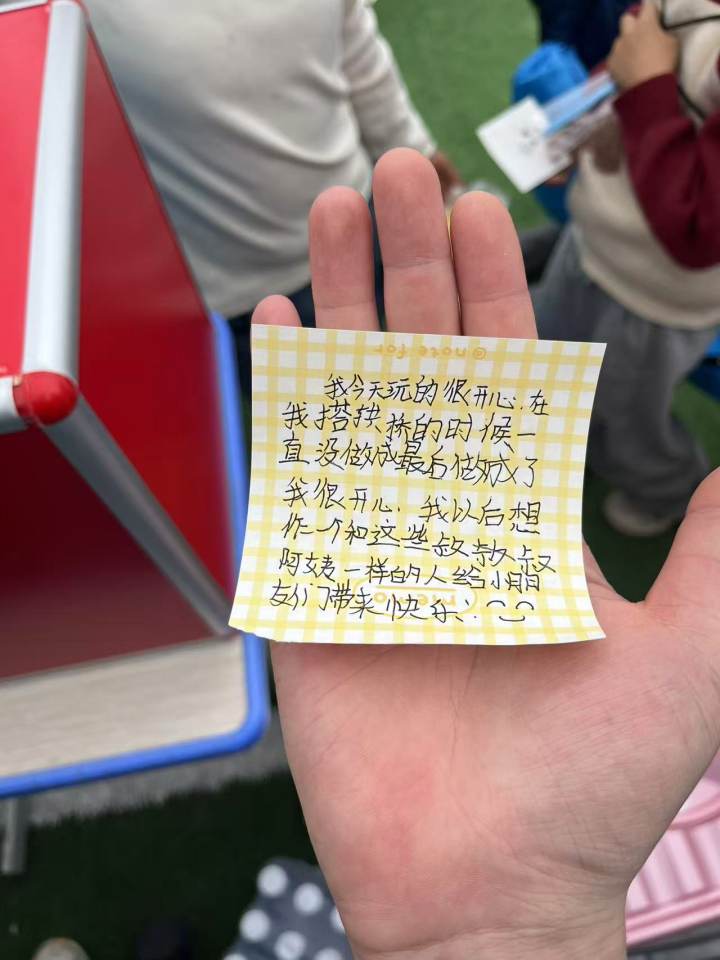 note for
我今天玩的很开心.在
我搭拱桥的时候一
直没做成最后做成了
我很开心.我以后想
作一个和这些叔叔
阿姨一样的人给小朋
友们带来快乐.
memo